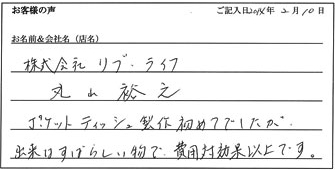 お客様の声 ご記入日2018年 2月10日
お名前＆会社名（店名）
株式会社 リブ・ライフ
丸山 裕之
ポケットティッシュ製作初めてでしたが、
出来はすばらしい物で、費用対効果以上です。